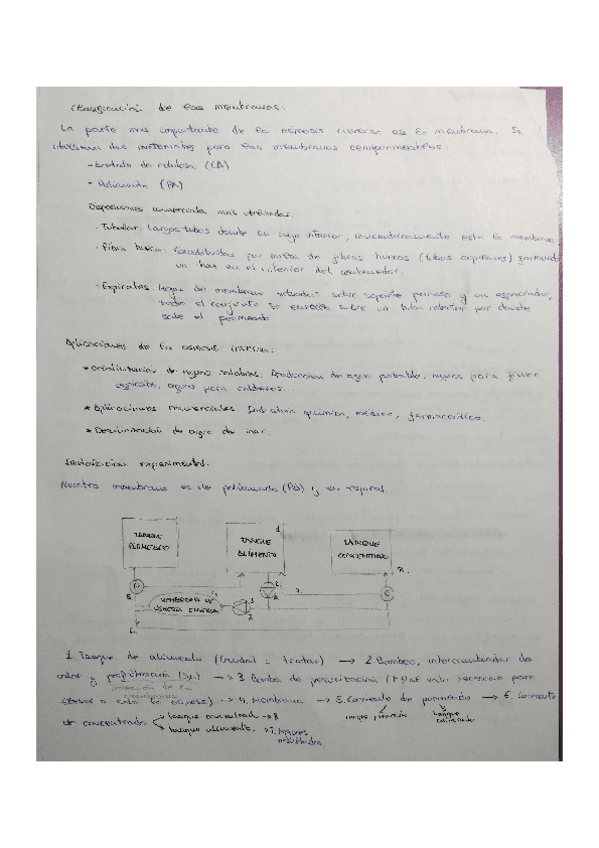 Clasificación de las membranas:
La parte más importante de la osmosis inversa es la membrana. Se
utilizan dos materiales para las membranas semipermeables:
- Acetato de celulosa (CA)
- Poliamida (PA)
Disposiciones comerciales más utilizadas:
· Tubular: Largos tubos donde en cuyo interior, concéntricamente está la membrana
· Fibra hueca: por de fibras huecas (tubos capilares) formando
un haz en el interior del contenedor.
· Espirales: Hojas de membrana situadas sobre soporte poroso y un espaciador,
todo el conjunto se enrolla sobre un tubo colector por donde
sale el permeado
Aplicaciones de la osmosis inversa:
* de aguas salobres. Producción de agua potable, aguas para
agrícolas, aguas para calderas.
* Aplicaciones comerciales. Industria química, médica, farmacéutica.
* Desalinización de agua de mar.
Instalación experimental.
Nuestra membrana es de poliamida (PA) y en espiral.
TANQUE
PERMEADO
TANQUE
ALIMENTO
1
TANQUE
CONCENTRADO
MEMBRANA DE
OSMOSIS INVERSA
1. Tanque de alimento (Caudal a tratar) → 2. Bombeo, intercambiador de
calor y prefiltración (5μ) → 3. Bomba de presurización (valor necesario para
) → 4. Membrana → 5. Corriente de permeado → 6. Corriente
de concentrado tanque concentrado → 8
tanque alimento → 7.
tanque permeado